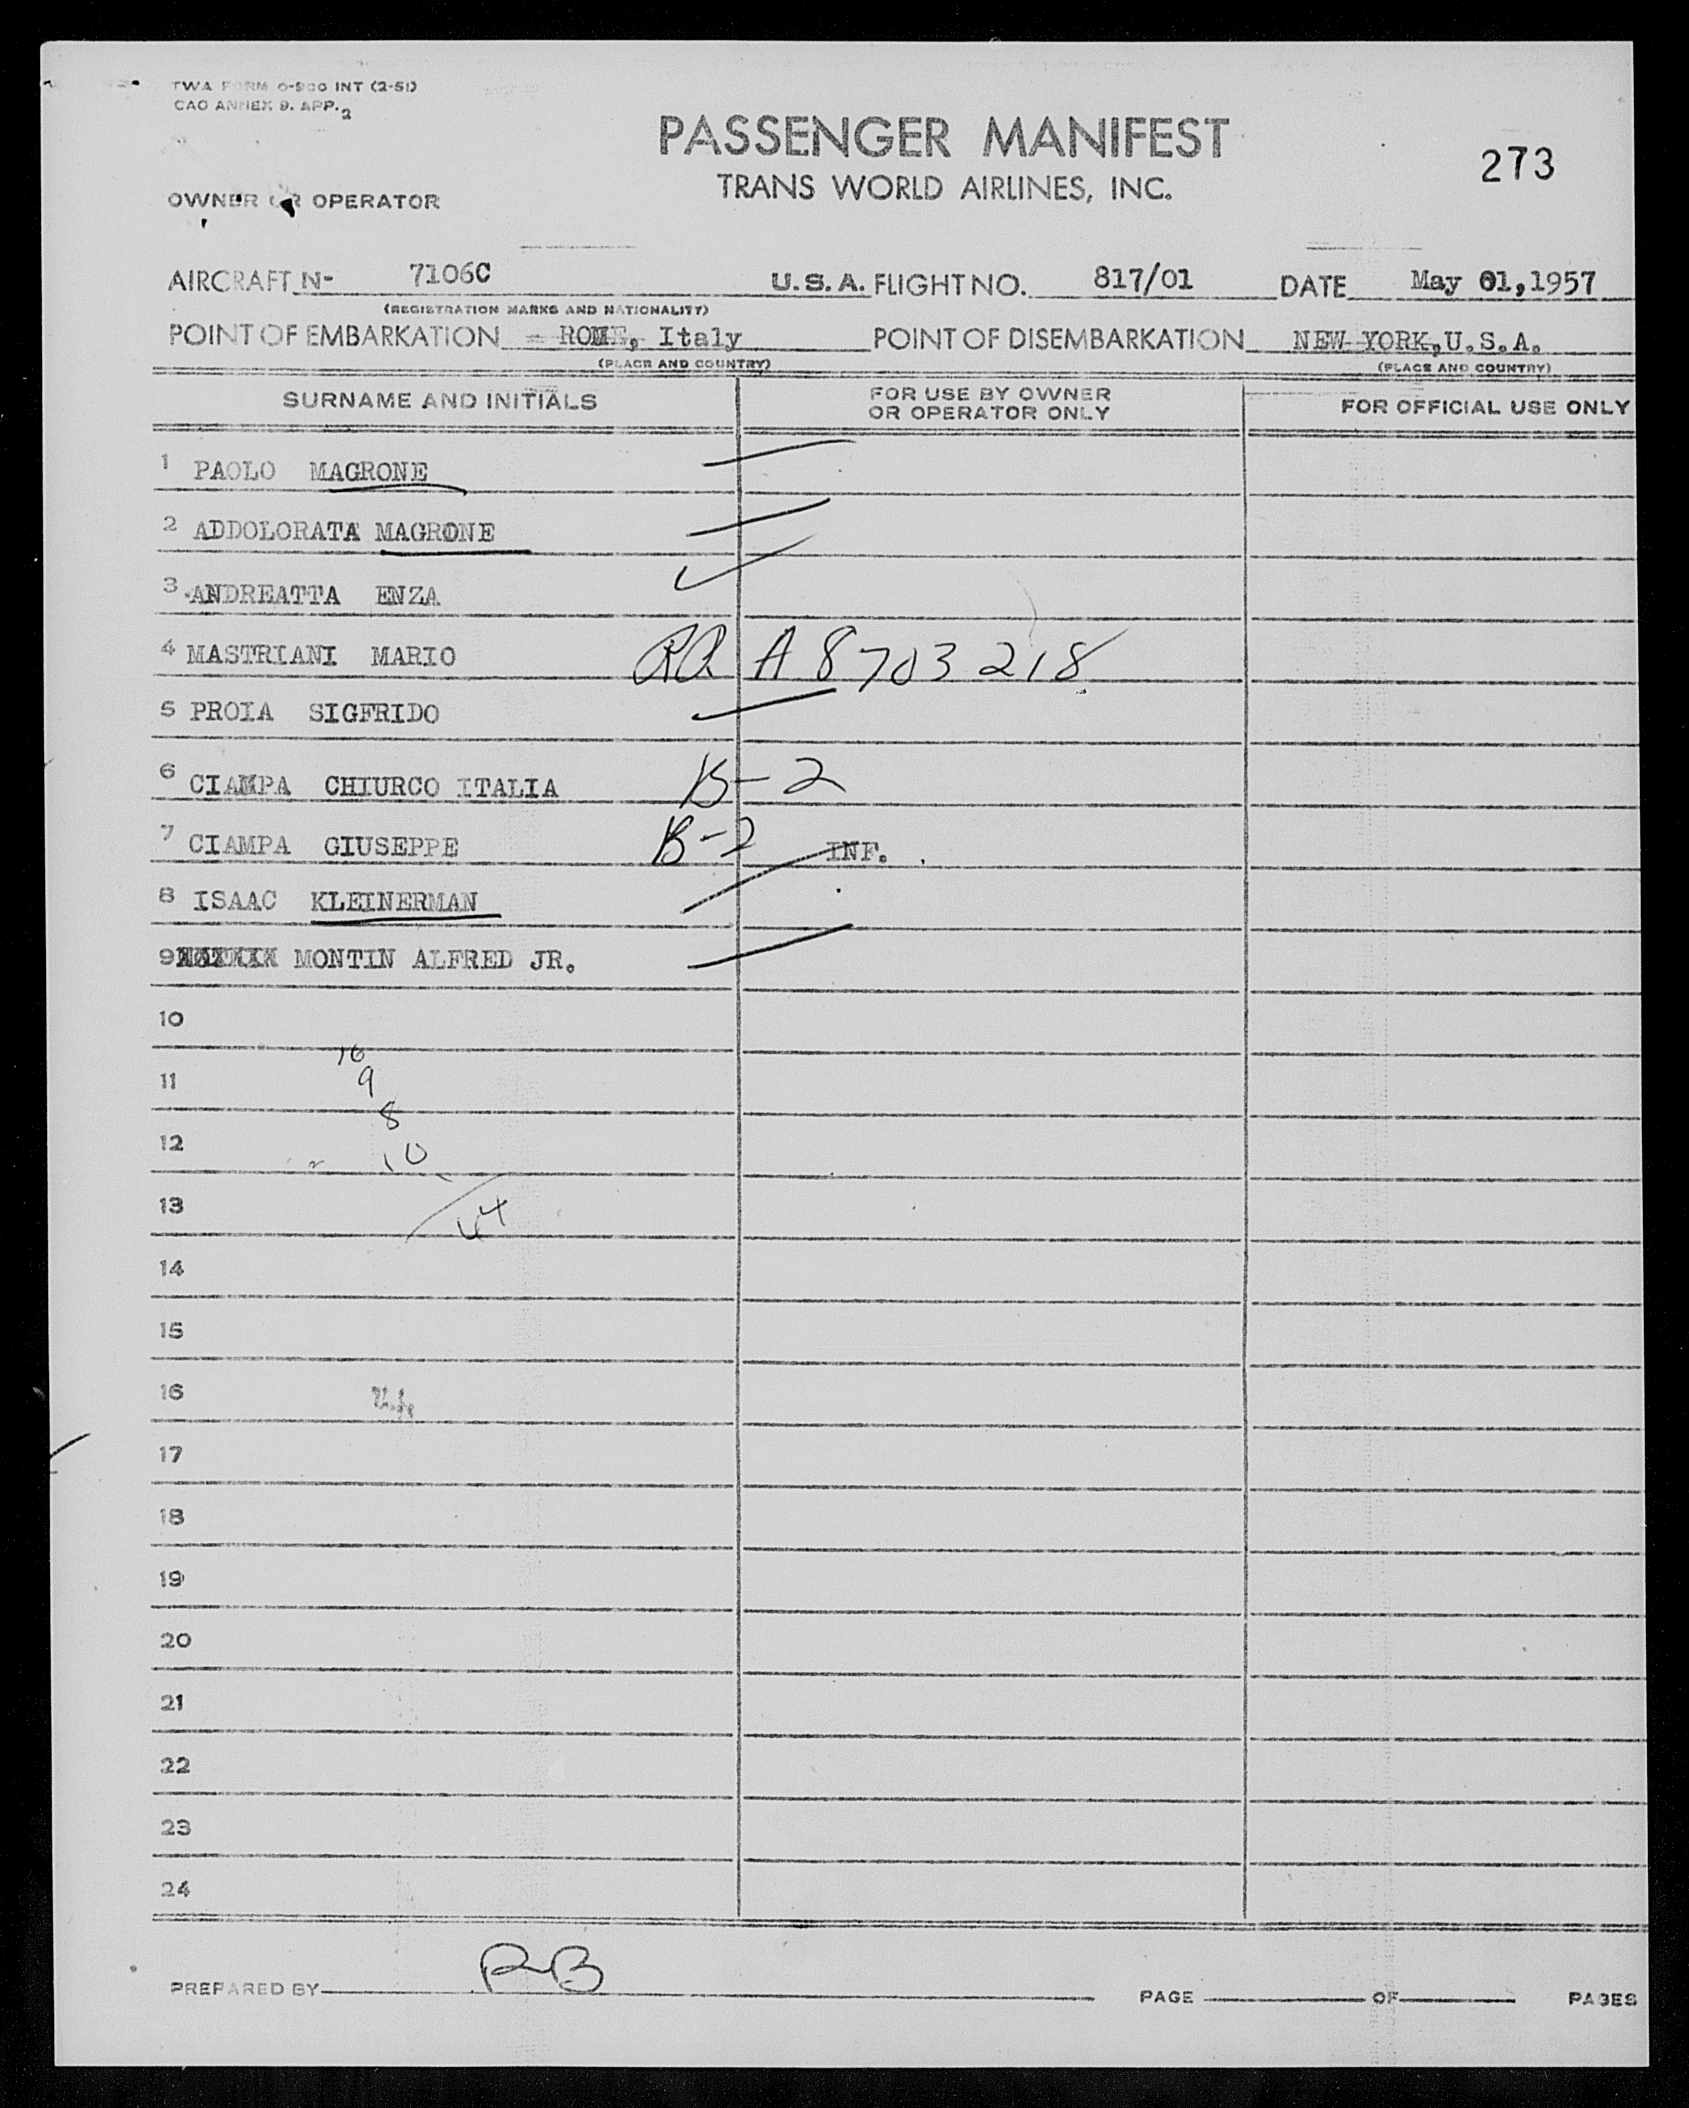 TWA FORM O-900 INT (2-51)
CAO ANNEX 9. APP. 2
PASSENGER MANIFEST
273
TRANS WORLD AIRLINES, INC.
OWNER OR OPERATOR
AIRCRAFT N- 7106C U.S.A. FLIGHT NO. 817/01 DATE May 01,1957
(REGISTRATION MARKS AND NATIONALITY)
POINT OF EMBARKATION ROME, Italy POINT OF DISEMBARKATION NEW YORK,U.S.A.
(PLACE AND COUNTRY) (PLACE AND COUNTRY)
SURNAME AND INITIALS FOR USE BY OWNER OR OPERATOR ONLY FOR OFFICIAL USE ONLY
1 PAOLO MAGRONE
2 ADDOLORATA MAGRONE
3 ANDREATTA ENZA
4 MASTRIANI MARIO RR A 8703218
5 PROIA SIGFRIDO
6 CIAMPA CHIURCO ITALIA B-2
7 CIAMPA GIUSEPPE B-2 INF.
8 ISAAC KLEINERMAN
9 MONTIN ALFRED JR.
10
16
11 9
8
12 10
13 44
14
15
16
17
18
19
20
21
22
23
24
PREPARED BY RB PAGE OF PAGES